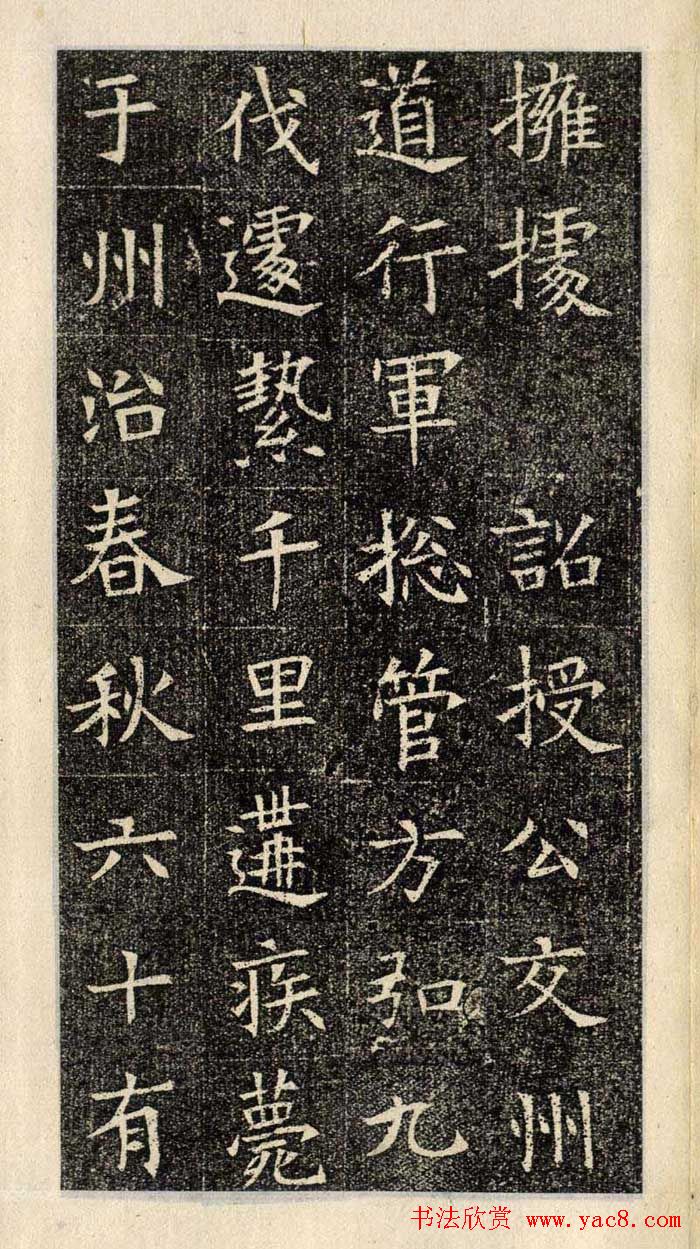 擁據 詔授公交州
道行軍揔管方弘九
伐遽縶千里遘疾薨
于州治春秋六十有
书法欣赏 www.yac8.com